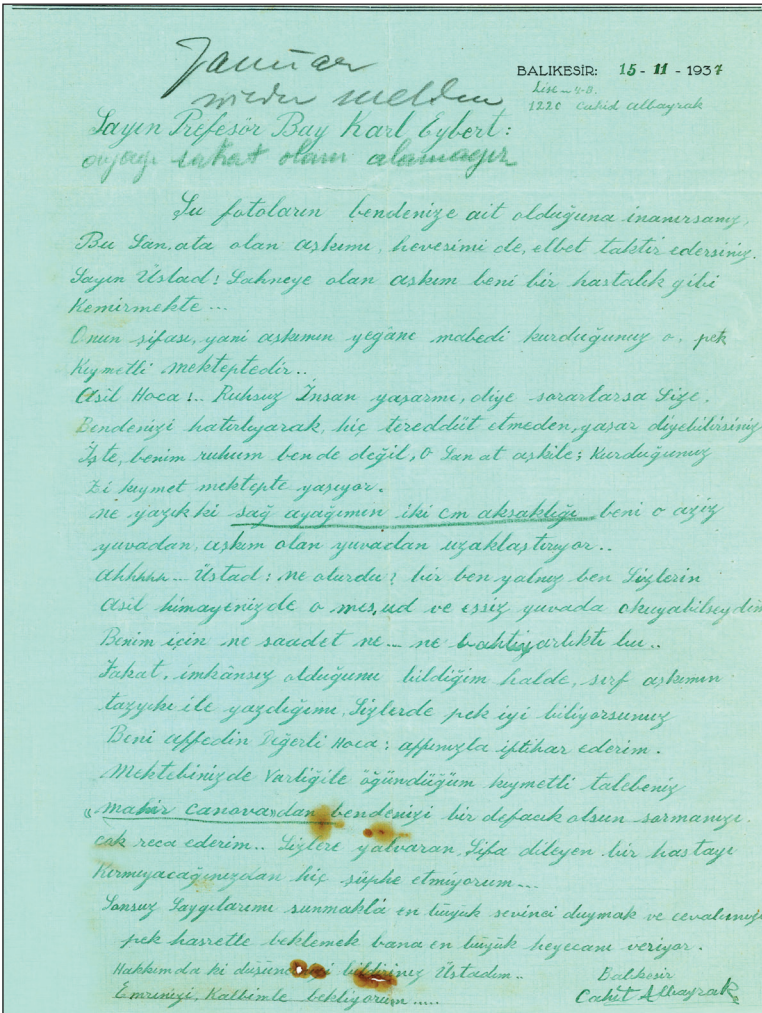 Januar
wieder melden
BALIKESİR: 15 - 11 - 1937
Lise
1220 Cahid Albayrak
Sayın Prefesör Bay Karl Eybert:
ayağı sakat olanı alamayız
Şu fotoların bendenize ait olduğuna inanırsanız,
Bu San,ata olan aşkımı, hevesimi de, elbet taktir edersiniz.
Sayın Üstad: Sahneye olan aşkım beni bir hastalık gibi
Kemirmekte...
Onun şifası, yani aşkımın yegâne mabedi kurduğunuz o, pek
Kıymetli mekteptedir..
Asil Hoca:.. Ruhsuz İnsan yaşarmı, diye sorarlarsa Size.
Bendenizi hatırlıyarak, hiç tereddüt etmeden, yaşar diyebilirsiniz
İşte, benim ruhum bende değil, O San at aşkile; Kurduğunuz
Zi kıymet mektepte yaşıyor.
ne yazık ki sağ ayağımın iki cm aksaklığı beni o aziz
yuvadan, aşkım olan yuvadan uzaklaştırıyor..
Ahhhhh... Üstad: ne olurdu? bir ben yalnız ben Sizlerin
Asil himayenizde o mes,ud ve eşsiz yuvada okuyabilseydim
Benim için ne saadet ne... ne bahtiyarlıktı bu..
Fakat, imkânsız olduğunu bildiğim halde, sırf aşkımın
tazyıkı ile yazdığımı, Sizlerde pek iyi biliyorsunuz
Beni affedin Değerli Hoca: affınızla iftihar ederim.
Mektebinizde Varlığile öğündüğüm kıymetli talebeniz
"mahir canova"dan bendenizi bir defacık olsun sormanızı.
çok reca ederim.. Sizlere yalvaran, Şifa dileyen bir hastayı
Kırmıyacağınızdan hiç şüphe etmiyorum...
Sonsuz Saygılarımı sunmakla en büyük sevinci duymak ve cevabınızı
pek hasrette beklemek bana en büyük heyecanı veriyor.
Hakkımda ki düşüncenizi bildiriniz Üstadım..
Balıkesir
Emrinizi, Kalbimle bekliyorum.....
Cahit Albayrak